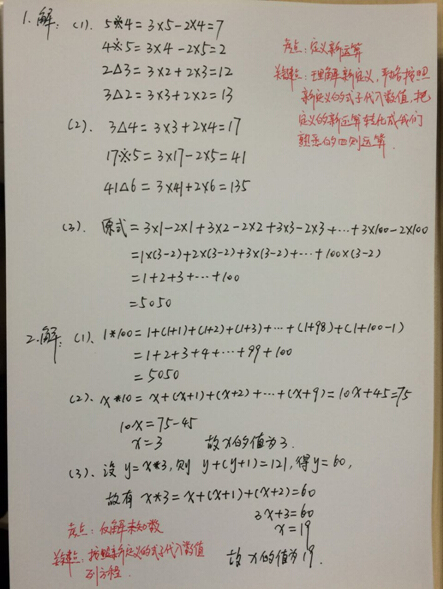 1.解: (1). 5※4=3×5-2×4=7
4※5=3×4-2×5=2
2△3=3×2+2×3=12
3△2=3×3+2×2=13
考点:定义新运算
关键点:理解新定义,严格按照
新定义的式子代入数值,把
定义的新运算转化成我们
熟悉的四则运算.
(2). 3△4=3×3+2×4=17
17※5=3×17-2×5=41
41△6=3×41+2×6=135
(3). 原式=3×1-2×1+3×2-2×2+3×3-2×3+…+3×100-2×100
=1×(3-2)+2×(3-2)+3×(3-2)+…+100×(3-2)
=1+2+3+…+100
=5050
2.解: (1). 1*100=1+(1+1)+(1+2)+(1+3)+…+(1+98)+(1+100-1)
=1+2+3+4+…+99+100
=5050
(2). x*10=x+(x+1)+(x+2)+…+(x+9)=10x+45=75
10x=75-45
x=3 故x的值为3.
(3). 设y=x*3,则 y+(y+1)=121,得y=60,
故有 x*3=x+(x+1)+(x+2)=60
3x+3=60
x=19
故x的值为19.
考点:反解未知数
关键点:按照新定义的式子代入数值
列方程.